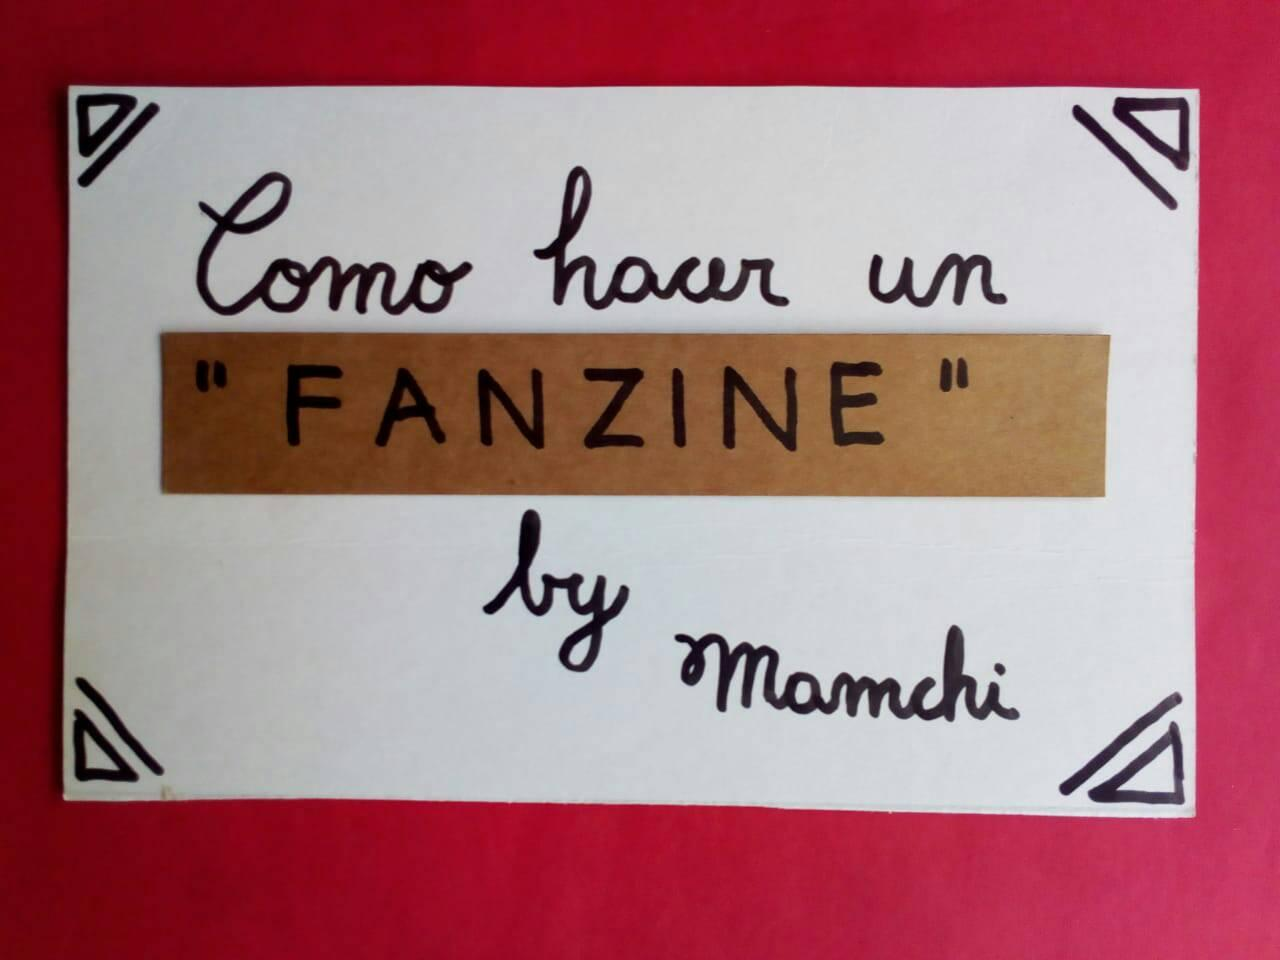 Como hacer un
"FANZINE"
by
Mamchi